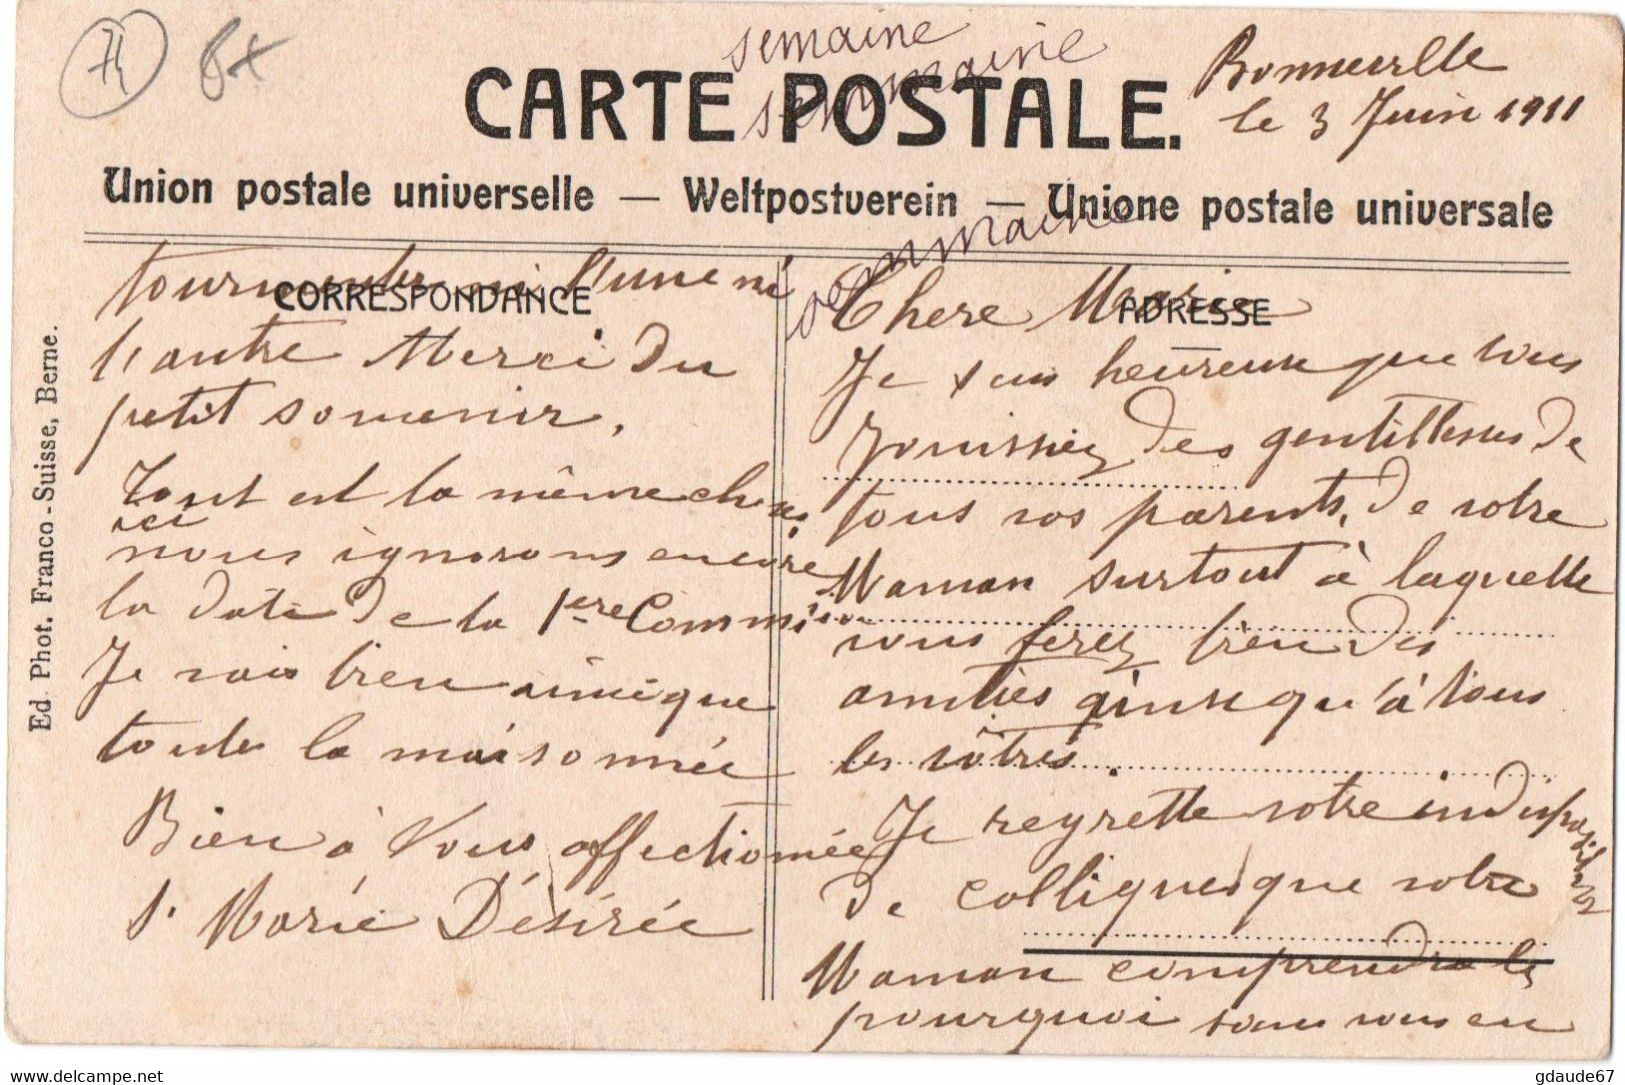 74
semaine
semmainie
semmaine
sommaine
CARTE POSTALE.
Bonneville
le 3 Juin 1911
Union postale universelle — Weltpostverein — Unione postale universale
CORRESPONDANCE
ADRESSE
Chere Marie
Je suis heureuse que vous
jouissiez des gentillesses de
tous vos parents, de votre
Maman surtout à laquelle
vous ferez bien des
amitiés qu'à tous
les vôtres.
Je regrette votre indisposition
de colliques que votre
Maman comprendra le
pourquoi sans vous en
tourmenter ni l'une ni
l'autre Merci du
petit souvenir.
Tout est la même chose
ici
nous ignorons encore
la date de la 1ere Commnion
Je vais bien ainsi que
toute la maisonnée
Bien à Vous affectionnée
S. Marie Désirée
Ed. Phot. Franco-Suisse, Berne.
www.delcampe.net
gdaude67